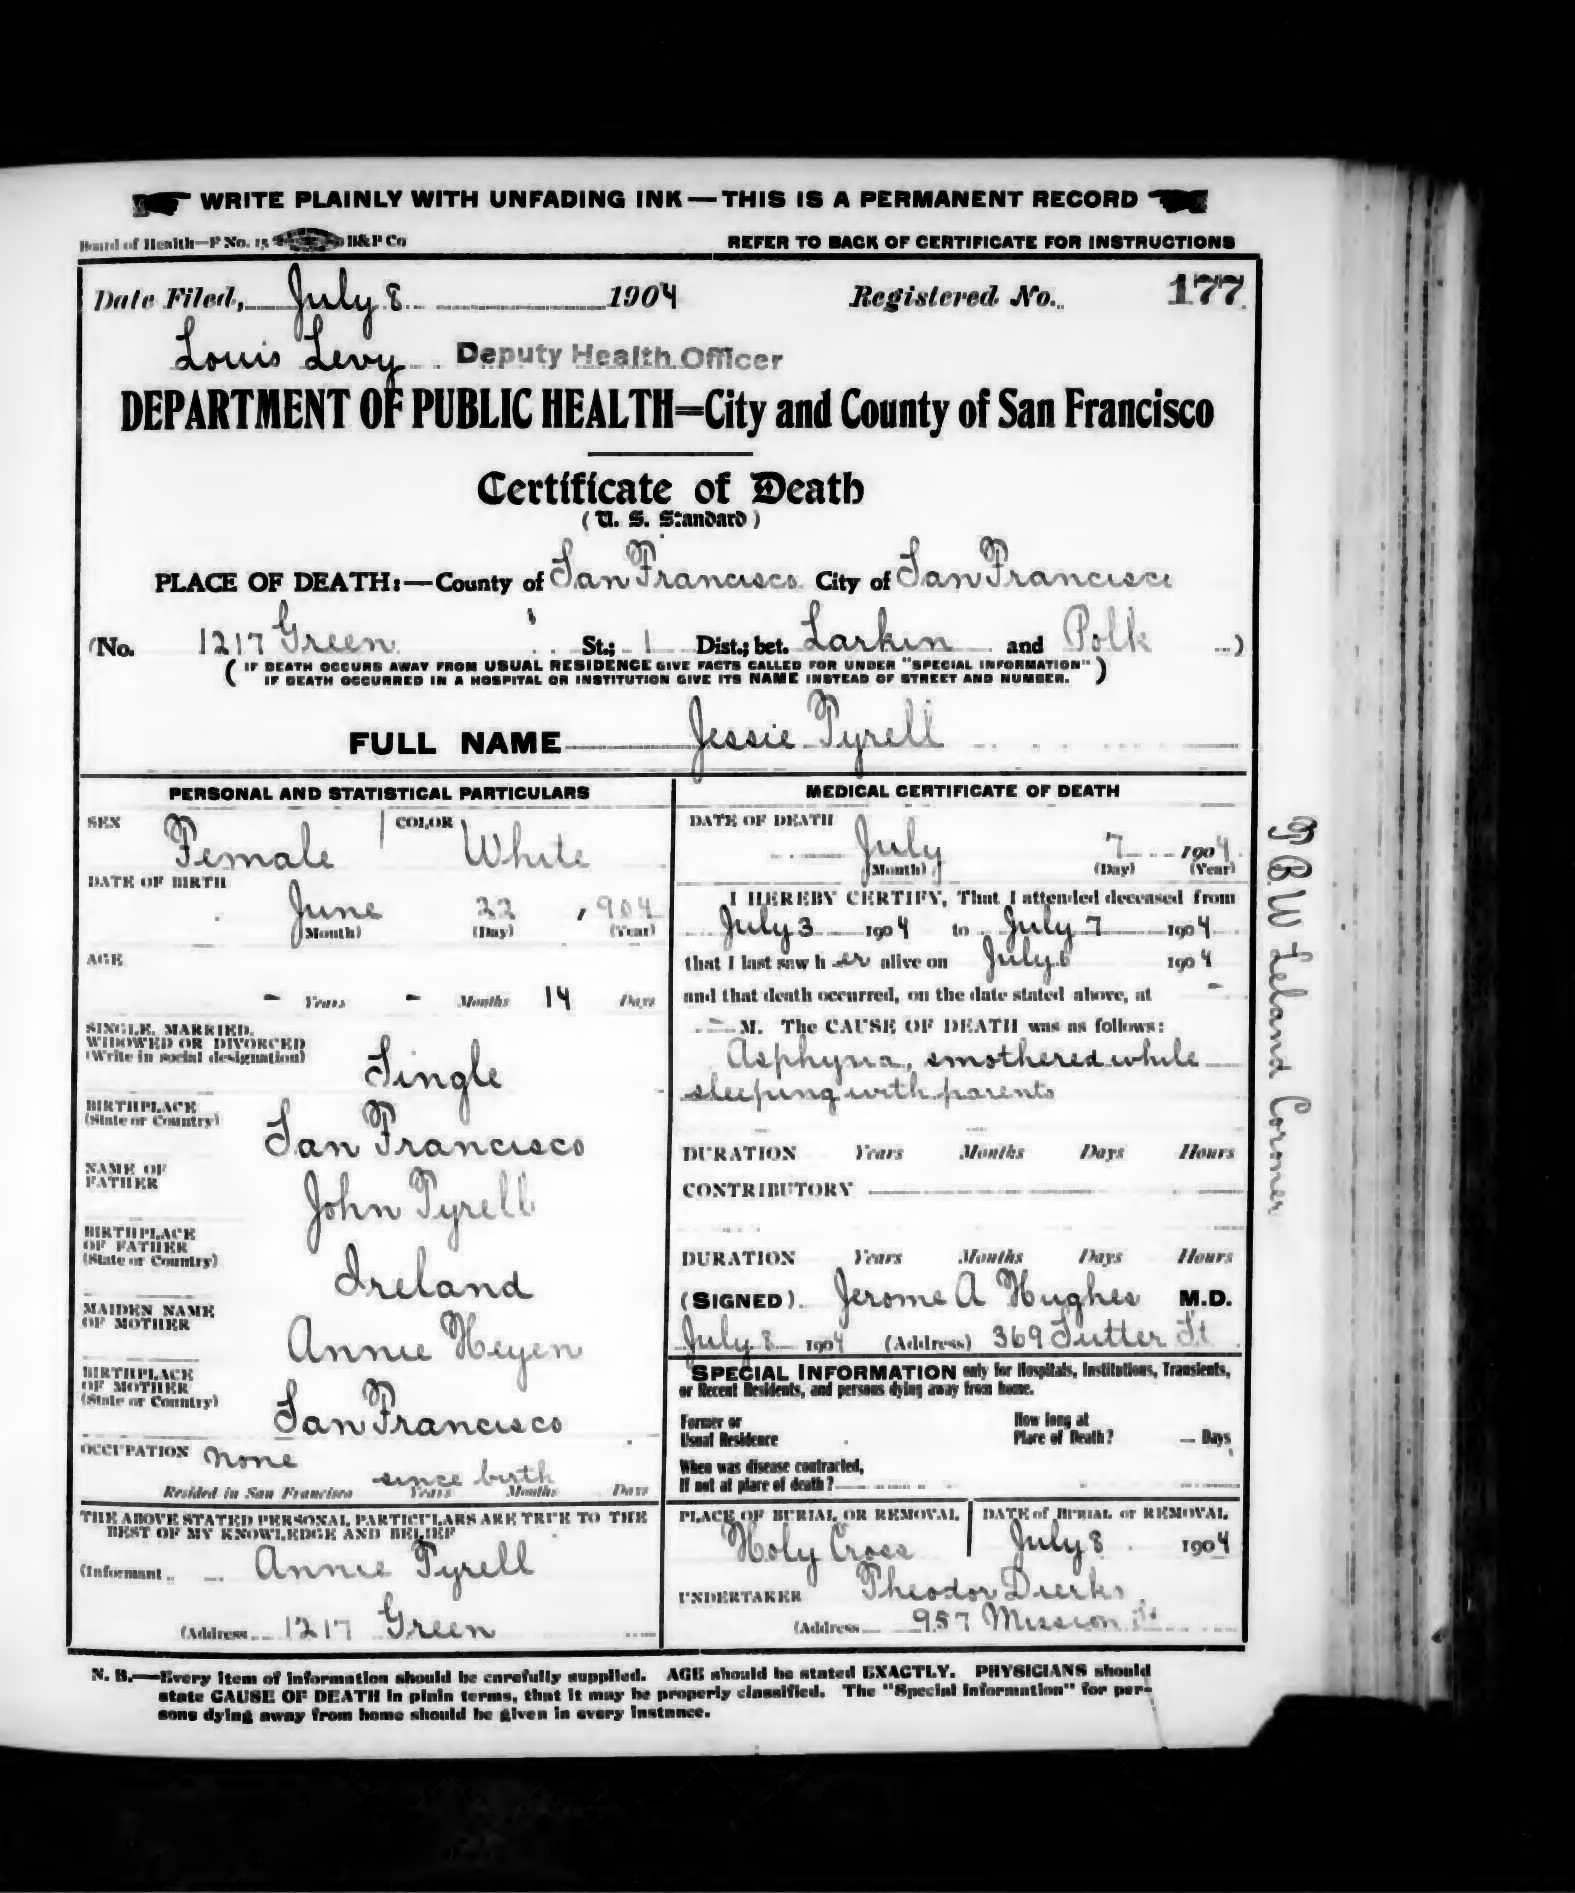 WRITE PLAINLY WITH UNFADING INK — THIS IS A PERMANENT RECORD
Board of Health—F No. 15 B&P Co REFER TO BACK OF CERTIFICATE FOR INSTRUCTIONS
Date Filed, July 8 1904 Registered No. 177
Louis Levy Deputy Health Officer
DEPARTMENT OF PUBLIC HEALTH=City and County of San Francisco
Certificate of Death
(U. S. Standard)
PLACE OF DEATH:—County of San Francisco City of San Francisco
(No. 1217 Green St.; 1 Dist.; bet. Larkin and Polk )
( IF DEATH OCCURS AWAY FROM USUAL RESIDENCE GIVE FACTS CALLED FOR UNDER "SPECIAL INFORMATION" )
IF DEATH OCCURRED IN A HOSPITAL OR INSTITUTION GIVE ITS NAME INSTEAD OF STREET AND NUMBER.
FULL NAME Jessie Tyrell
PERSONAL AND STATISTICAL PARTICULARS
SEX Female COLOR White
DATE OF BIRTH
June 22 , 904
(Month) (Day) (Year)
AGE
- Years - Months 14 Days
SINGLE, MARRIED,
WIDOWED OR DIVORCED
(Write in social designation) Single
BIRTHPLACE
(State or Country) San Francisco
NAME OF
FATHER John Tyrell
BIRTHPLACE
OF FATHER
(State or Country) Ireland
MAIDEN NAME
OF MOTHER Annie Heyen
BIRTHPLACE
OF MOTHER
(State or Country) San Francisco
OCCUPATION None
since birth
Resided in San Francisco Years Months Days
THE ABOVE STATED PERSONAL PARTICULARS ARE TRUE TO THE
BEST OF MY KNOWLEDGE AND BELIEF
(Informant Annie Tyrell
(Address 1217 Green
MEDICAL CERTIFICATE OF DEATH
DATE OF DEATH
July 7 1904
(Month) (Day) (Year)
I HEREBY CERTIFY, That I attended deceased from
July 3 1904 to July 7 1904
that I last saw h er alive on July 6 1904
and that death occurred, on the date stated above, at -
- M. The CAUSE OF DEATH was as follows:
Asphyxia, smothered while
sleeping with parents
DURATION Years Months Days Hours
CONTRIBUTORY
DURATION Years Months Days Hours
(SIGNED) Jerome A Hughes M.D.
July 8 1904 (Address) 369 Sutter St
SPECIAL INFORMATION only for Hospitals, Institutions, Transients,
or Recent Residents, and persons dying away from home.
Former or
Usual Residence
How long at
Place of Death? Days
When was disease contracted,
If not at place of death?
PLACE OF BURIAL OR REMOVAL
Holy Cross
DATE of BURIAL or REMOVAL
July 8 1904
UNDERTAKER Theodor Dierks
(Address 957 Mission St
N. B.—Every item of information should be carefully supplied. AGE should be stated EXACTLY. PHYSICIANS should
state CAUSE OF DEATH in plain terms, that it may be properly classified. The "Special Information" for per-
sons dying away from home should be given in every instance.
T B W Leland Corner